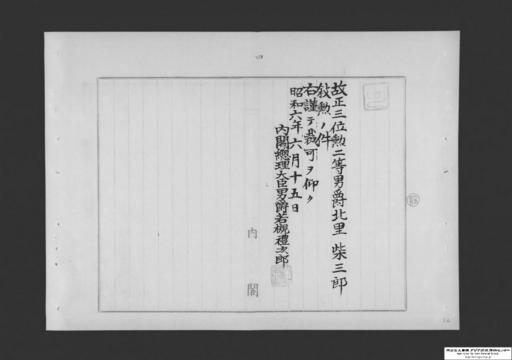 故正三位勲二等男爵北里柴三郎
敍勲ノ件
右謹テ裁可ヲ仰ク
昭和六年六月十五日
内閣總理大臣男爵若槻禮次郎
内閣